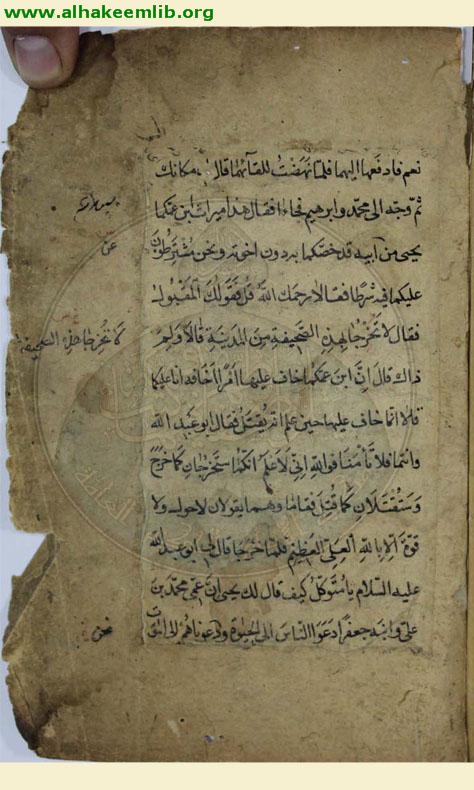 www.alhakeemlib.org
نعم فادفعها اليهما فلمّا نهضت للقآئهما قال لى مكانك
ثمّ وجّه الى محمّد و ابرهيم فجاءا فقال هذا ميراث ابن عمّكما
يحيى من ابيه قد خصّكما به دون اخوته و نحن مشترطون
عليكما فيه شرطا فقالا رحمك اللّه قل فقولك المقبول
فقال لا تخرجا بهذه الصّحيفة من المدينة قالا و لم
ذاك قال انّ ابن عمّكما خاف عليها امرا اخافه انا عليكما
قالا انّما خاف عليها حين علم انّه يقتل فقال ابو عبد الله
و انتما فلا تأمنا فو الله انّى لاعلم انّكما ستخرجان كما خرج
و ستقتلان كما قتل فقاما و هما يقولان لا حول و لا
قوّة الّا بالله العلىّ العظيم فلمّا خرجا قال لى ابو عبد الله
عليه السلام يا متوكّل كيف قال لك يحيى انّ عمّى محمّد بن
علىّ و ابنه جعفرا دعوا الناس الى الحيوة و دعوناهم الى الموت
عن
نحن